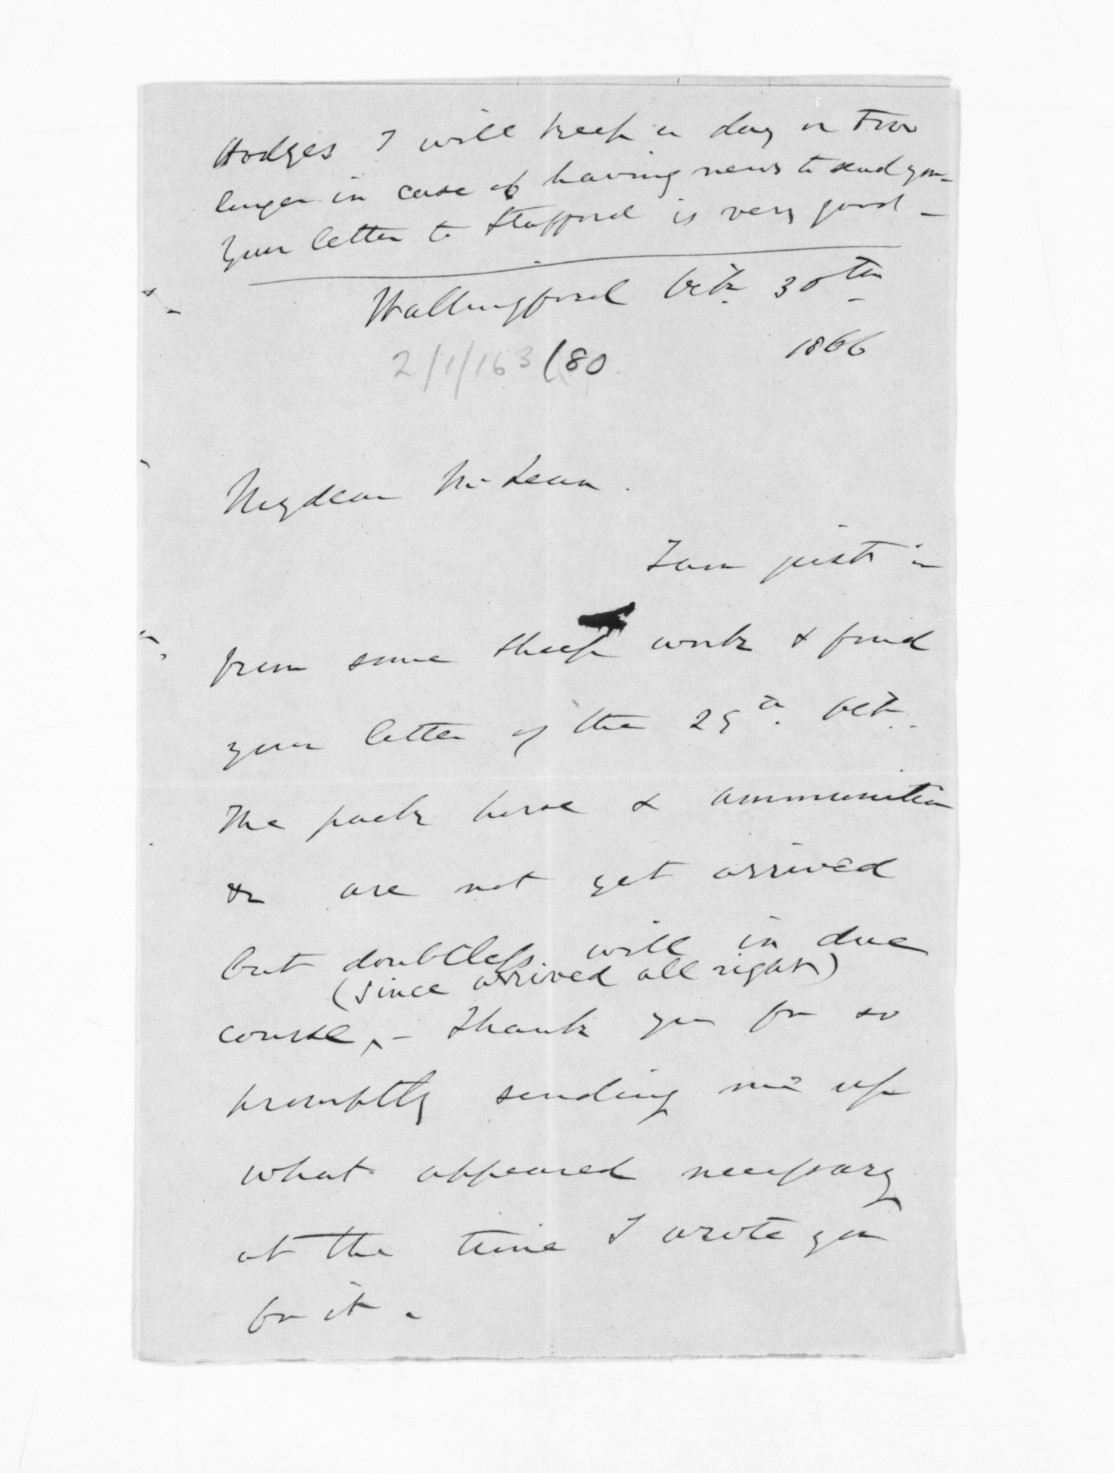 Hodges I will keep a day or two
longer in case of having news to send you -
Your letter to Stafford is very good -
Wallingford Oct. 30th
1866
2/1/163 (80
My dear McLean.
I am just in
from some sheep work & find
your letter of the 25th. Oct.
The pack horse & ammunition
&c are not yet arrived
but doubtless will in due
(since arrived all right)
course ^ - Thank you for so
promptly sending me up
what appeared necessary
at the time I wrote you
for it.